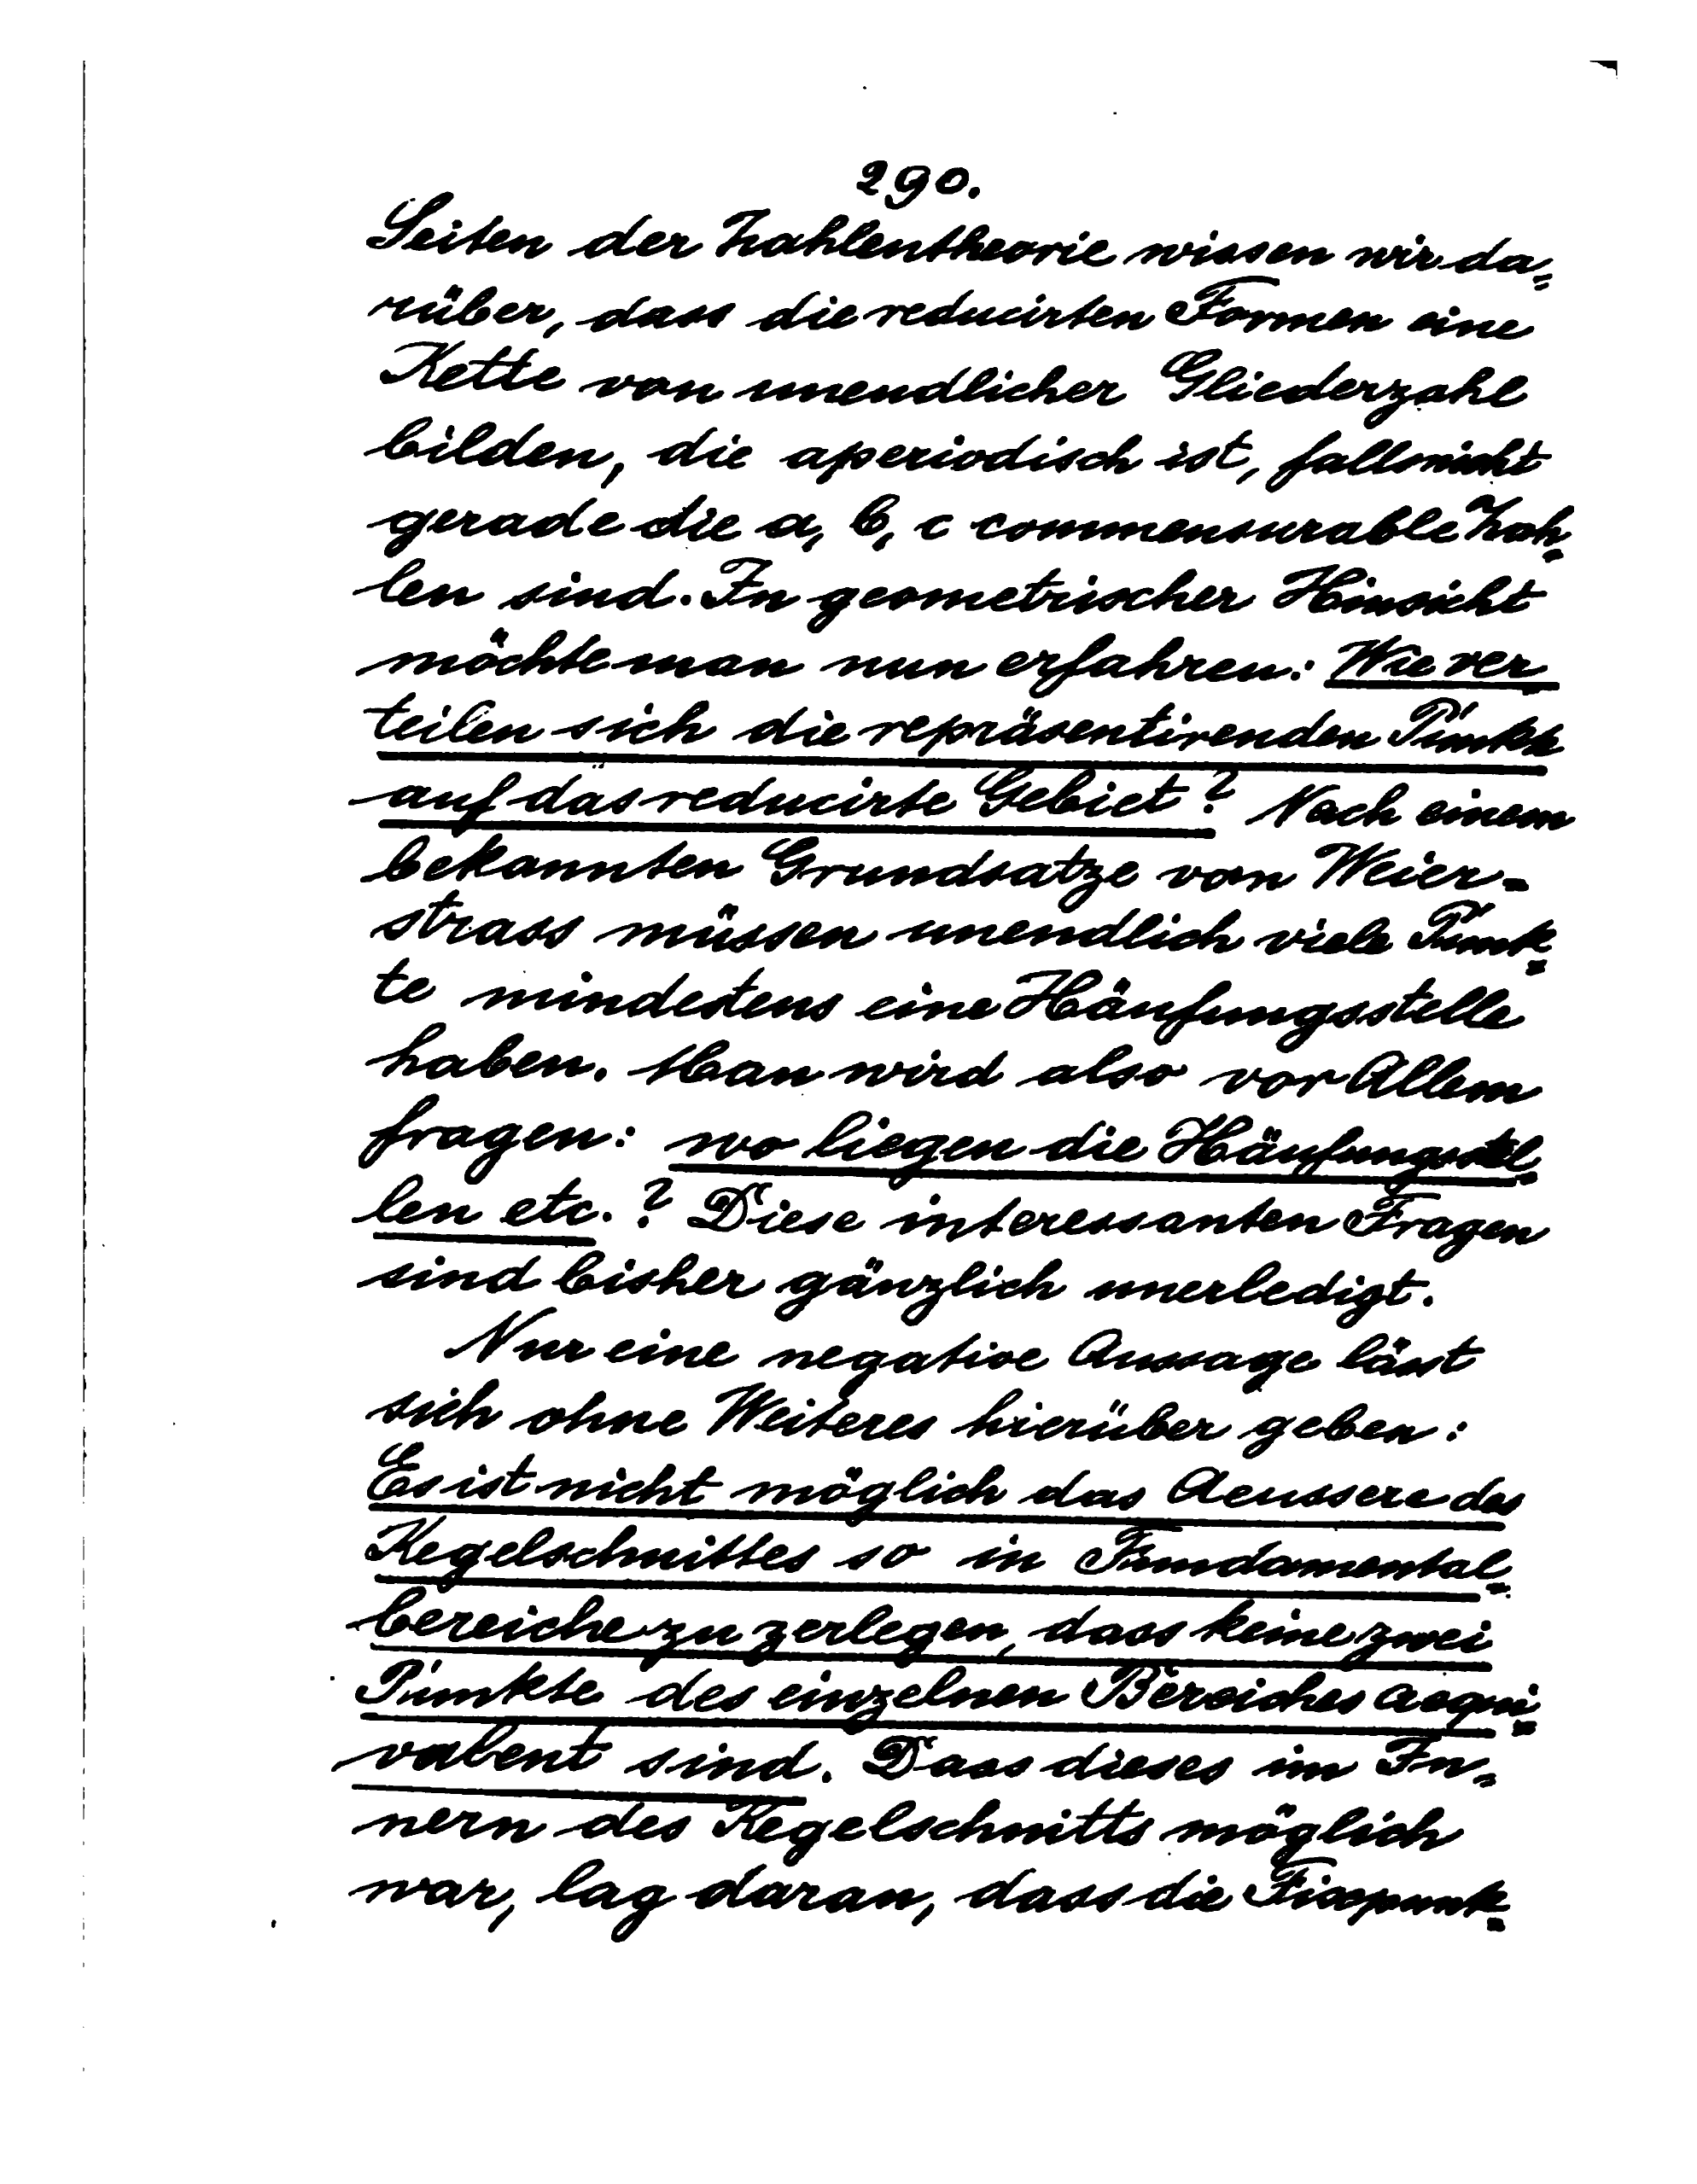 290.
Seiten der Zahlentheorie wissen wir da=
rüber, dass die reducirten Formen eine
Kette von unendlicher Gliederzahl
bilden, die aperiodisch ist, falls nicht
gerade die a, b, c commensurable Zah=
len sind. In geometrischer Hinsicht
möchte man nun erfahren: Wie ver
teilen sich die repräsentirenden Punkte
auf das reducirte Gebiet? Nach einem
bekannten Grundsatze von Weier=
strass müssen unendlich viele Punk=
te mindestens eine Häufungsstelle
haben. Man wird also vor Allem
fragen: wo liegen die Häufungsstel=
len etc.? Diese interessanten Fragen
sind bisher gänzlich unerledigt.
Nur eine negative Aussage lässt
sich ohne Weiteres hierüber geben:
Es ist nicht möglich das Aeussere des
Kegelschnittes so in Fundamental=
bereiche zu zerlegen, dass keine zwei
Punkte des einzelnen Bereiches aequi=
valent sind. Dass dieses im In=
nern des Kegelschnitts möglich
war, lag daran, dass die Fixpunk=